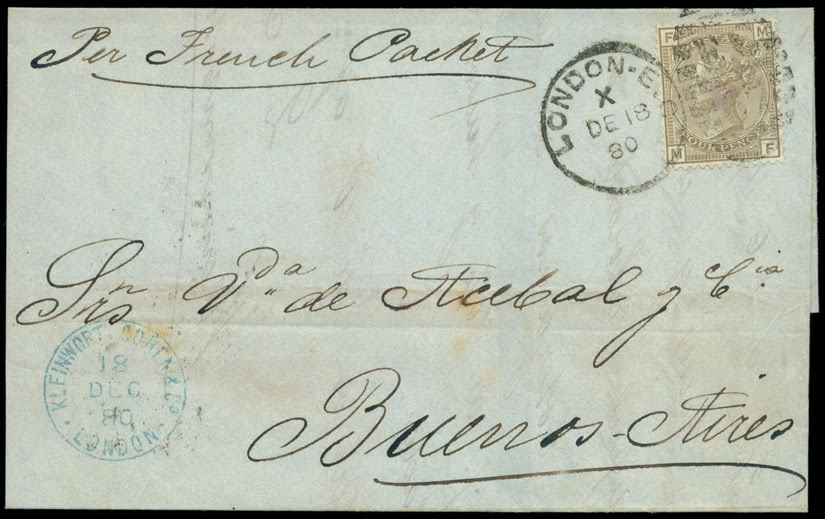 Per French Packet
LONDON-E.C
X
DE 18
80
F M
FOUR PENCE
M F
Srn Vda de Acebal y Cia
Srs
KLEINWORT, COHEN & Co.
18
DEC
80
LONDON
Buenos-Aires